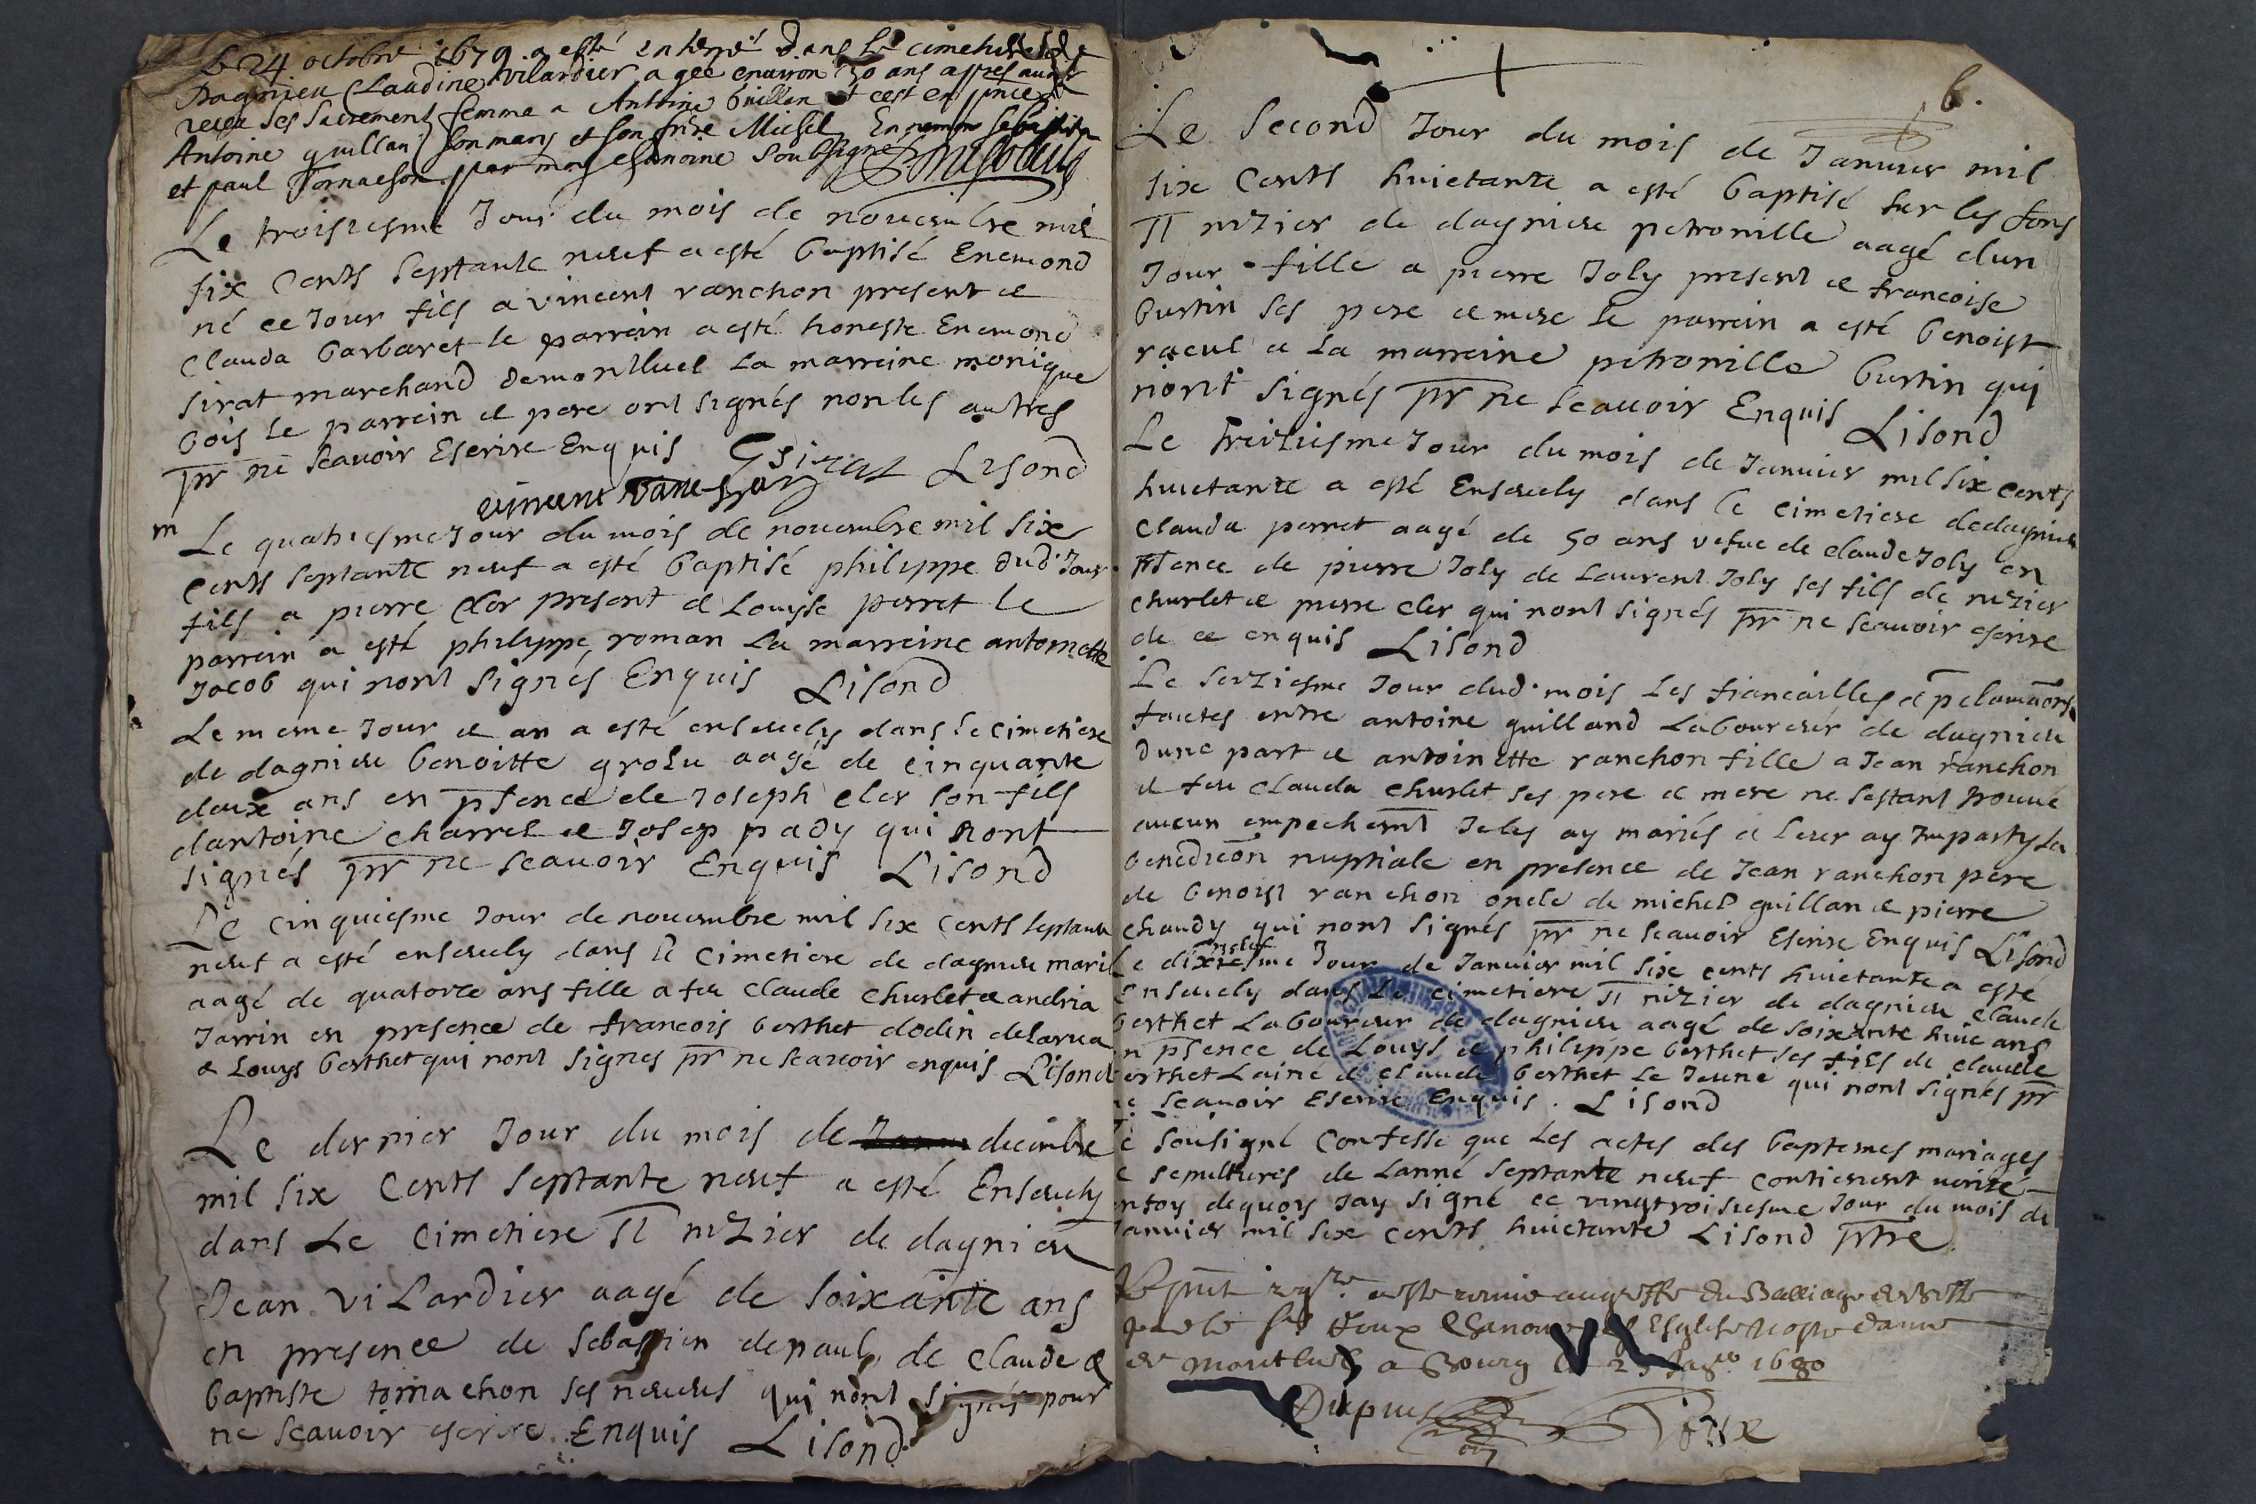 Le 24 octobre 1679 a esté enterré dans le cimetiere de
Dagnieu Claudine vilardier agee environ 50 ans apres avoir
receu ses sacrement femme a Antoine Guillan et cest en
Antoine guillan son mary et son frere Michel
et paul Tornachon par moy chanoine soubsigné
Le troisiesme Jour du mois de novembre mil
six Cents septante neuf a esté baptisé Enemond
né ce Jour fils a vincent ranchon present et
Clauda barbaret le parrein a esté honeste Enemond
sirat marchand de montluel La marreine monique
bois le parrein et pere ont signés non les autres
pr ne scavoir Escrire Enquis Esirat Lisond
vincent ranchon
m
Le quatriesme Jour du mois de novembre mil six
Cents septante neuf a esté baptisé philippe dud Jour
fils a pierre Cler present et Louyse perret le
parrein a esté philippe roman La marreine antoinette
Jacob qui nont signés Enquis Lisond
Le mesme Jour et an a esté ensevely dans le cimetiere
de dagnieu benoitte grosu aagé de cinquante
deux ans en psence de Joseph cler son fils
dantoine charrel et Josep pady qui nont
signés pr ne scavoir Enquis Lisond
Le cinquiesme Jour de novembre mil six cents septante
neuf a esté ensevely dans le cimetiere de dagnieu marie
aagé de quatorze ans fille a feu Claude Churlet et andria
Jarrin en presence de francois berthet dodin delarua
et Louys berthet qui nont signes pr ne scavoir enquis Lisond
Le dernier Jour du mois de decembre
mil six Cents septante neuf a esté Ensevely
dans Le Cimetiere st nizier de dagnieu
Jean viLardier aagé de soixante ans
en presence de sebastien de paul de Claude et
baptiste tornachon ses neveus qui nont signés pour
ne scavoir escrire Enquis Lisond
6.
Le second Jour du mois de Janvier mil
six Cents huictante a esté baptisé sur les fons
st nizier de dagnieu petronille aagé dun
Jour fille a pierre Joly present et francoise
burtin ses pere et mere le parrein a esté benoist
raeul et La marreine petronille burtin qui
nont signés pr ne scavoir Enquis Lisond
Le treiziesme Jour du mois de Janvier mil six cents
huictante a esté Ensevely dans le cimetiere de dagnieu
Clauda perret aagé de 50 ans vefve de Claude Joly en
psence de pierre Joly de Laurent Joly ses fils de nizier
churlet et pierre cler qui nont signés pr ne scavoir escrire
de ce enquis Lisond
Le seziesme Jour dud. mois les fiancailles et pclamaons
faictes entre antoine guilland Laboureur de dagnieu
dune part et antoinette ranchon fille a Jean ranchon
et feu Clauda Churlet ses pere et mere ne sestant trouvé
aucun empechemt Je les ay mariés et leur ay Imparty La
benediction nuptiale en presence de Jean ranchon pere
de benoist ranchon oncle de michel guillan et pierre
chaudy qui nont signés pr ne scavoir Escrire Enquis Lisond
Le dixneufiesme Jour de Janvier mil six cents huictante a esté
Ensevely dans Le cimetiere st nizier de dagnieu Claude
berthet Laboureur de dagnieu aagé de soixante huic ans
en psence de Louys et philippe berthet ses fils de claude
berthet Lainé et claude berthet le Jeune qui nont signés pr
ne scavoir Escrire Enquis. Lisond
Je sousigné Confesse que Les actes des baptemes mariages
et sepultures de Lanné septante neuf contienent verité
en foy dequoy Jay signé ce vingtroisiesme Jour du mois de
Janvier mil six cents huictante Lisond prtre
Le pnt regre a esté remis au greffe du Balliage de
par le Sr Foux Chanoine de lEsglise Nostre dame
de Montluel a Bourg le 25 1680
Dupuis Foux